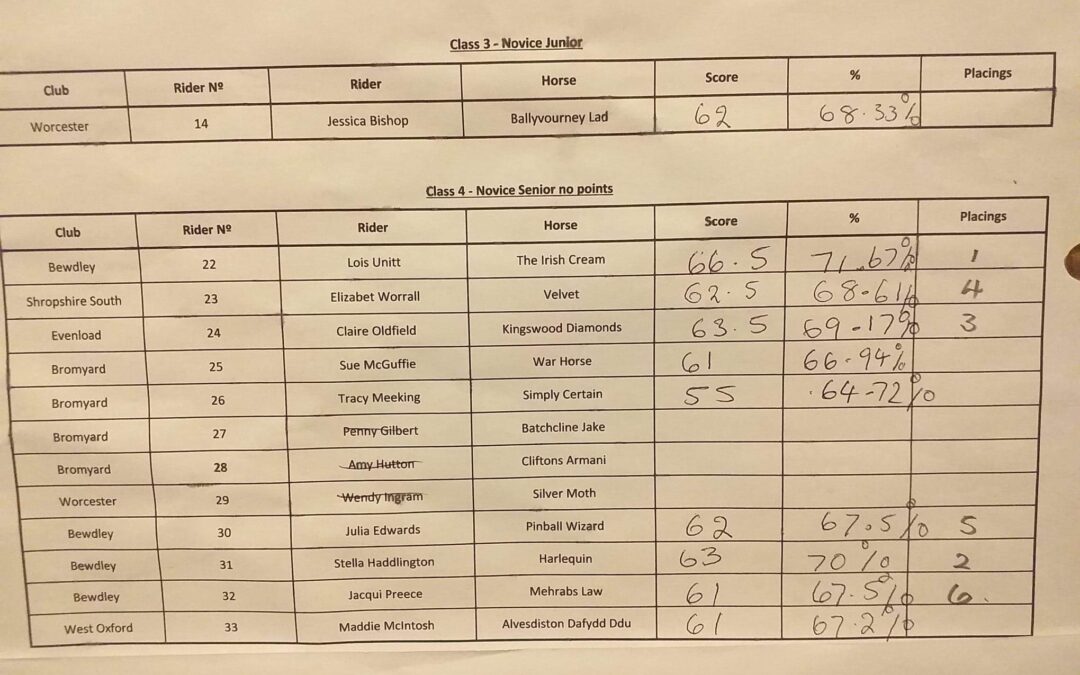 Class 3 - Novice Junior
Club Rider Nº Rider Horse Score % Placings
Worcester 14 Jessica Bishop Ballyvourney Lad 62 68.33%
Class 4 - Novice Senior no points
Club Rider Nº Rider Horse Score % Placings
Bewdley 22 Lois Unitt The Irish Cream 66.5 71.67% 1
Shropshire South 23 Elizabet Worrall Velvet 62.5 68.61% 4
Evenload 24 Claire Oldfield Kingswood Diamonds 63.5 69-17% 3
Bromyard 25 Sue McGuffie War Horse 61 66-94%
Bromyard 26 Tracy Meeking Simply Certain 55 64-72%
Bromyard 27 Penny Gilbert Batchcline Jake
Bromyard 28 Amy Hutton Cliftons Armani
Worcester 29 Wendy Ingram Silver Moth
Bewdley 30 Julia Edwards Pinball Wizard 62 67.5% 5
Bewdley 31 Stella Haddlington Harlequin 63 70% 2
Bewdley 32 Jacqui Preece Mehrabs Law 61 67.5% 6.
West Oxford 33 Maddie McIntosh Alvesdiston Dafydd Ddu 61 67.2%